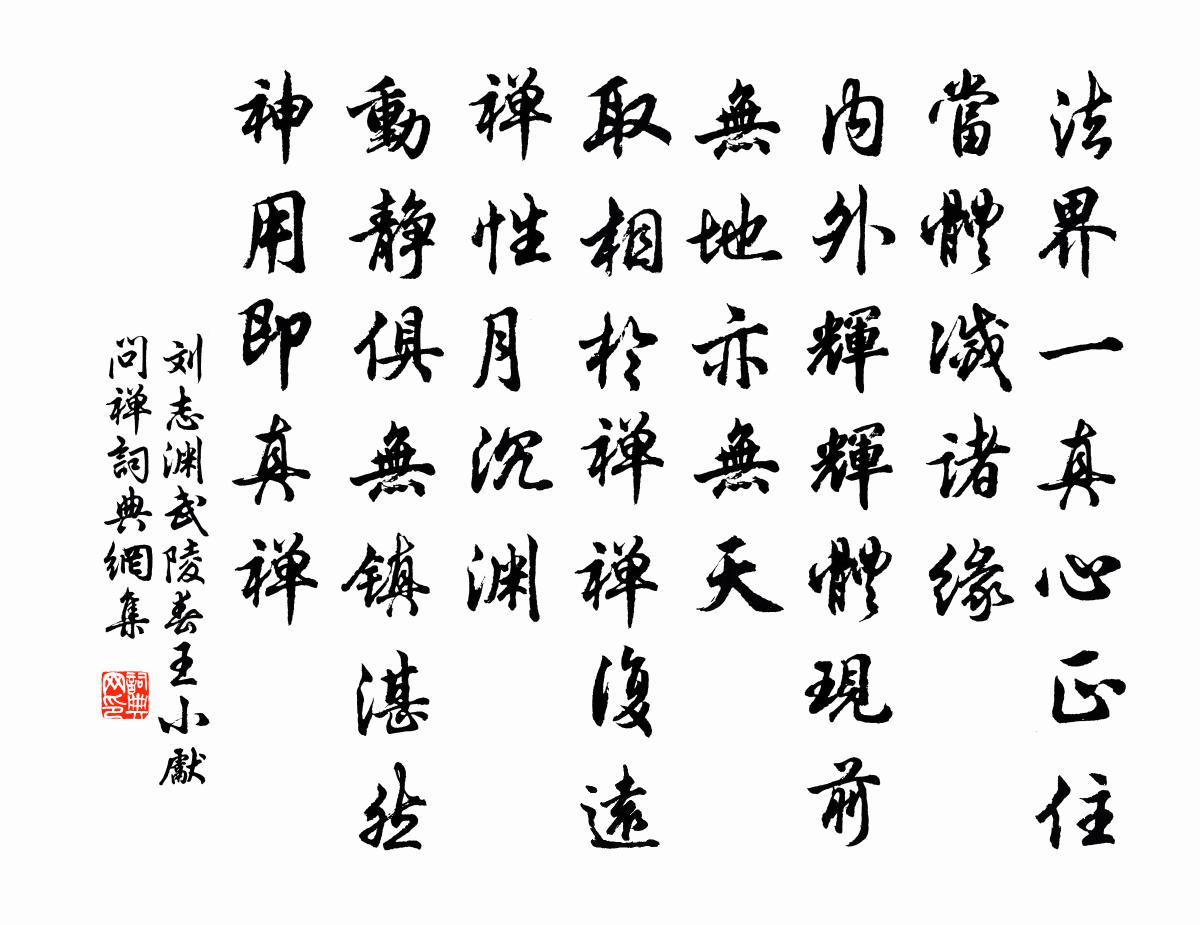 法界一真心正住
當體滅諸緣
内外輝輝體現前
無地亦無天
取相於禅禅復遠
禅性月沉渊
動静俱無鎮湛然
神用即真禅
刘志渊武陵春王小獻
問禅詞典網集
詞典网印